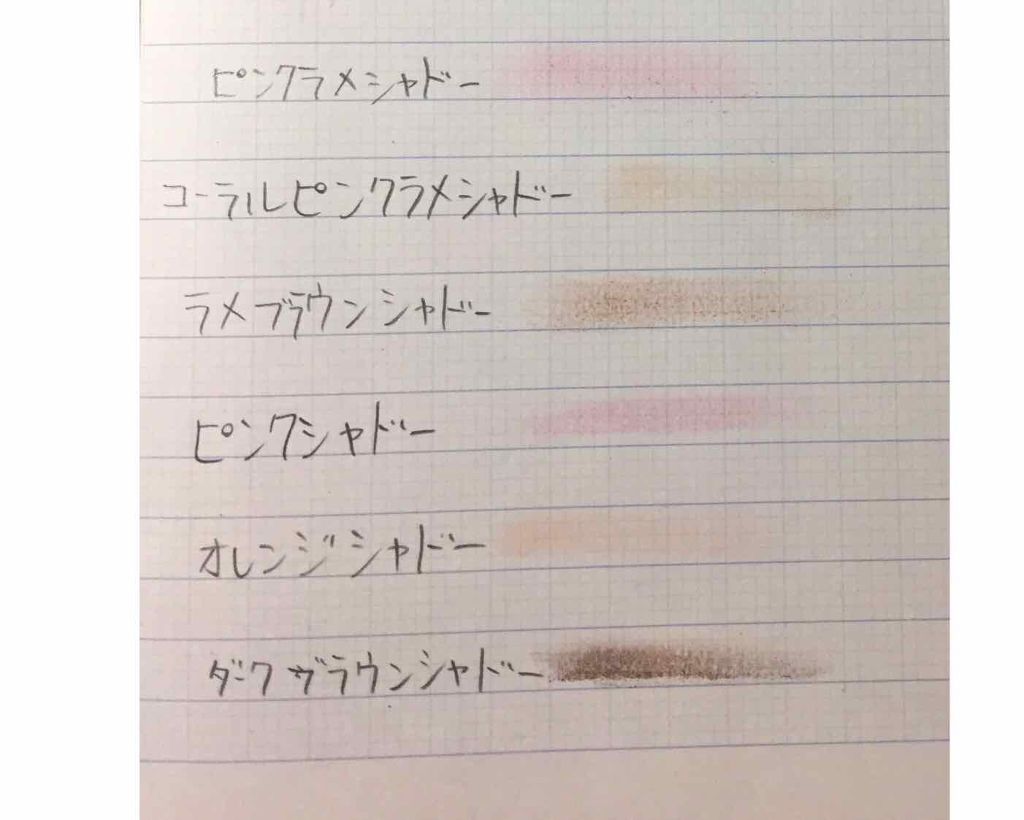 ピンクラメシャドー
コーラルピンクラメシャドー
ラメブラウンシャドー
ピンクシャドー
オレンジシャドー
ダークブラウンシャドー